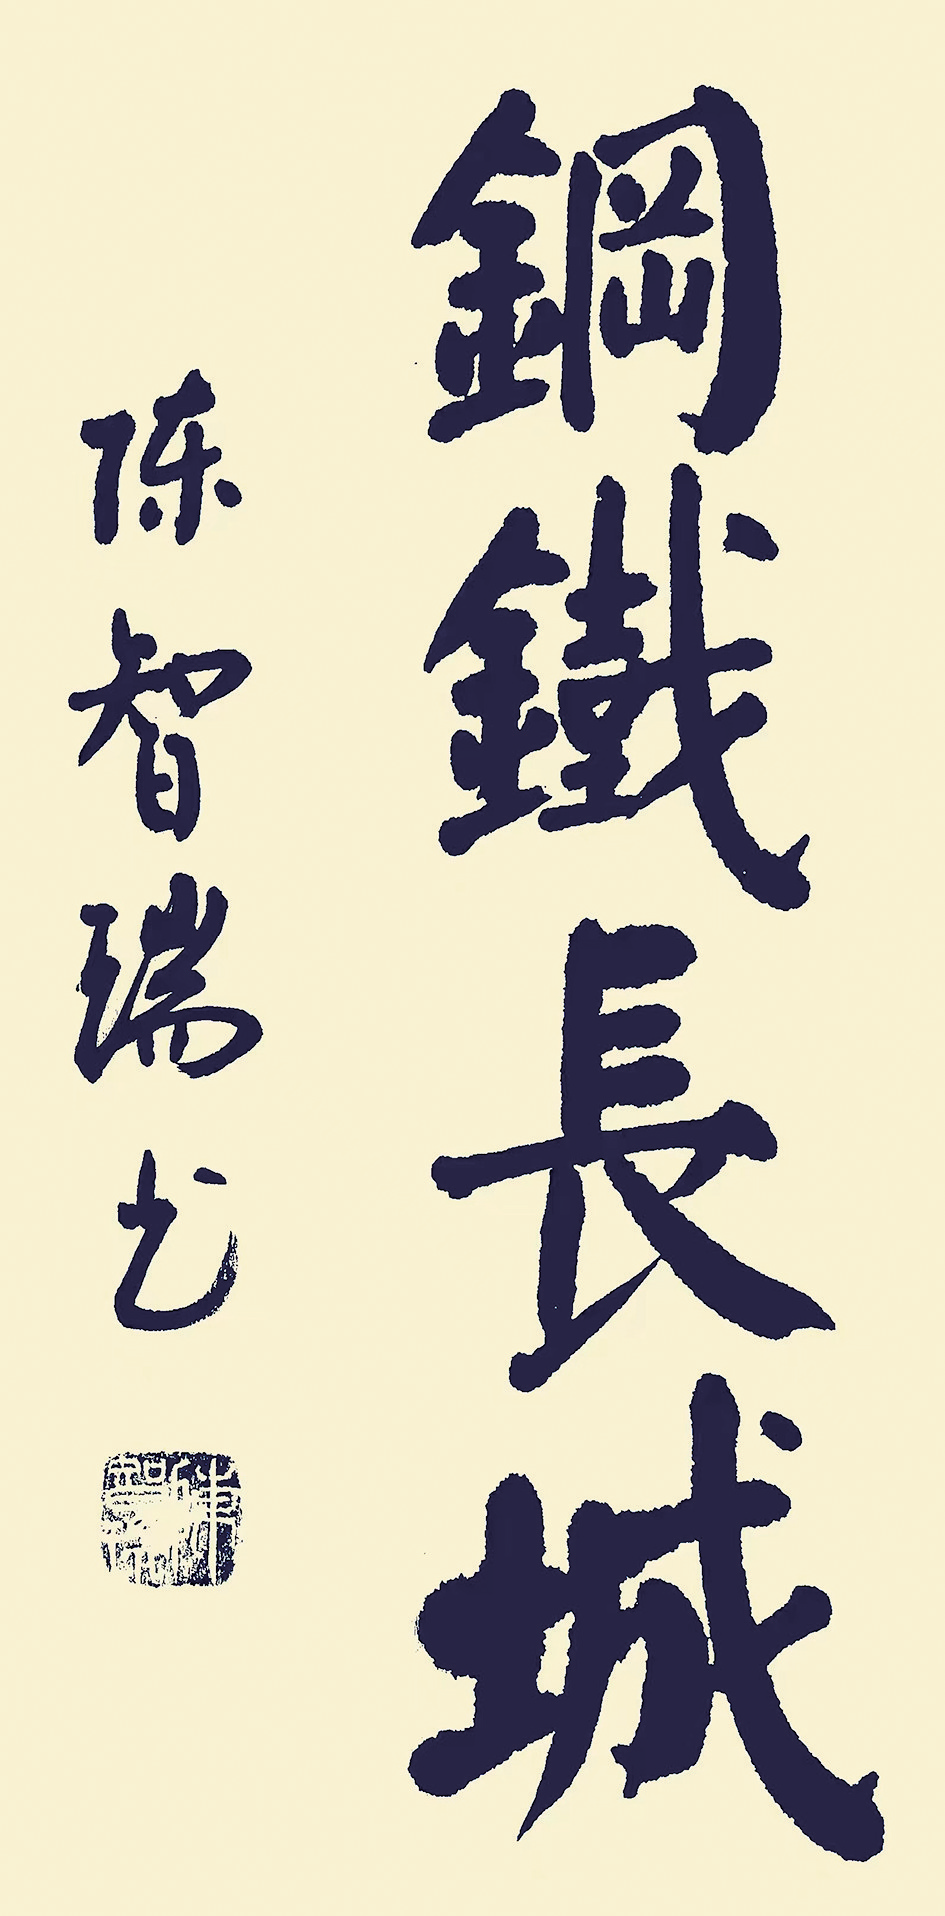 鋼鐵長城
陈智瑞书